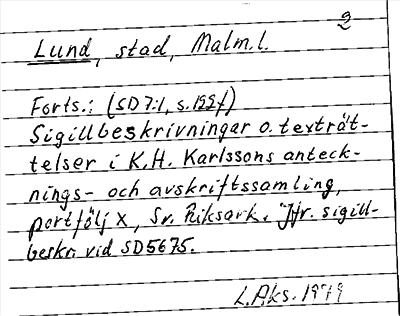 2
Lund, stad, Malm.l.
Forts.: (SD 7:1, s.199f)
Sigillbeskrivningar o. texträt-
telser i K.H. Karlssons anteck-
nings- och avskriftssamling,
portfölj X, Sv. Riksark. Jfr. sigill-
beskr. vid SD 5675.
L.Aks. 1979